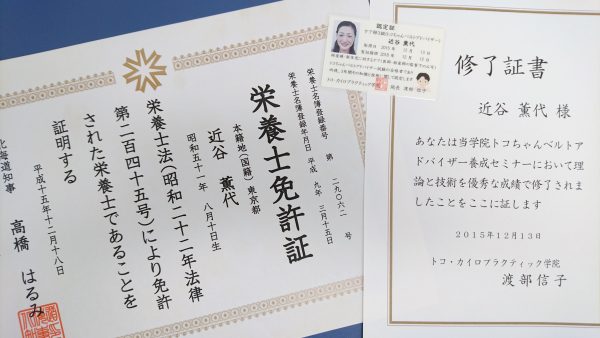 栄養士免許証
栄養士名簿登録番号 第 二九〇六二 号
栄養士名簿登録年月日 平成 九年 三月十五日
本籍地(国籍) 東京都
近谷 薫代
昭和五十一年 八月十日生
栄養士法(昭和二十二年法律
第二百四十五号)により免許
された栄養士であることを
証明する
平成十五年十二月十八日
北海道知事 高橋 はるみ
認定証
近谷 薫代
トコ・カイロプラクティック学院 院長 渡部 信子
修了証書
近谷 薫代 様
あなたは当学院トコちゃんベルトア
ドバイザー養成セミナーにおいて理
論と技術を優秀な成績で修了されま
したことをここに証します
2015年12月13日
トコ・カイロプラクティック学院
渡部信子